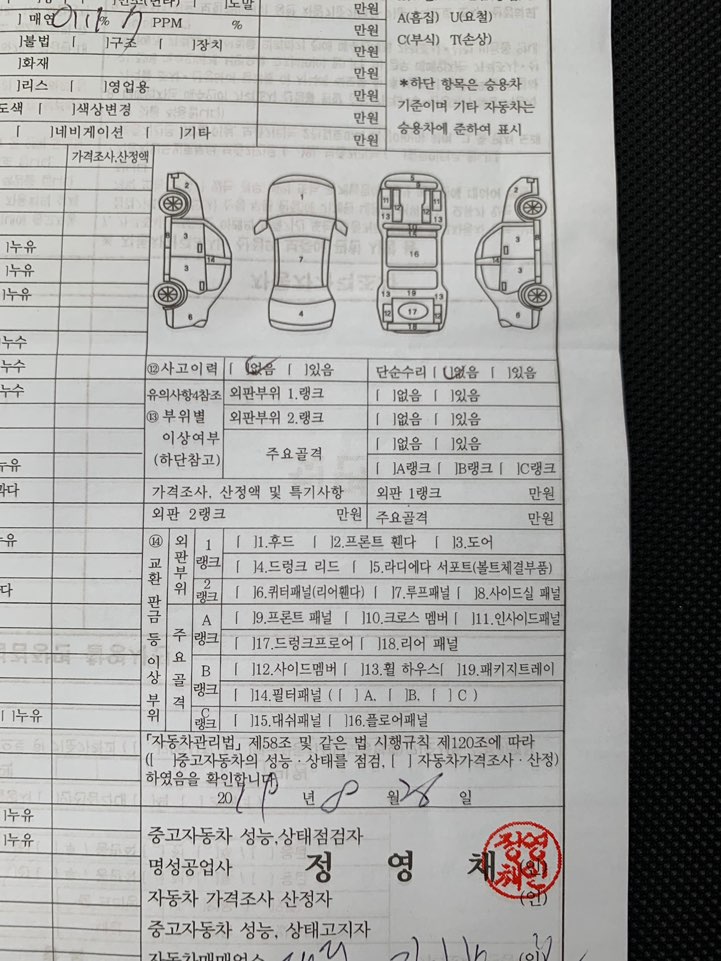 ]매연 % PPM % 만원 A(흠집) U(요철)
]불법 [ ]구조 [ ]장치 만원 C(부식) T(손상)
]화재 만원
]리스 [ ]영업용 만원 *하단 항목은 승용차
도색 [ ]색상변경 만원 기준이며 기타 자동차는
]네비게이션 [ ]기타 만원 승용차에 준하여 표시
가격조사,산정액
]누유
]누유
]누유
]누수
]누수
]누수
]누유
]누유
]누유
]누유
⑫사고이력 [ ]없음 [ ]있음 단순수리 [ ]없음 [ ]있음
유의사항4참조 외판부위 1.랭크 [ ]없음 [ ]있음
⑬ 부위별 외판부위 2.랭크 [ ]없음 [ ]있음
이상여부 주요골격 [ ]없음 [ ]있음
(하단참고) [ ]A랭크 [ ]B랭크 [ ]C랭크
가격조사, 산정액 및 특기사항 외판 1랭크 만원
외판 2랭크 만원 주요골격 만원
⑭ 교환 판금 등 이상 부위
외판부위 1랭크 [ ]1.후드 [ ]2.프론트 휀다 [ ]3.도어
[ ]4.드렁크 리드 [ ]5.라디에다 서포트(볼트체결부품)
2랭크 [ ]6.퀴터패널(리어휀다) [ ]7.루프패널 [ ]8.사이드실 패널
주요골격 A랭크 [ ]9.프론트 패널 [ ]10.크로스 멤버 [ ]11.인사이드패널
[ ]17.드렁크프로어 [ ]18.리어 패널
B랭크 [ ]12.사이드멤버 [ ]13.휠 하우스 [ ]19.패키지트레이
[ ]14.필터패널 ([ ] A, [ ]B, [ ] C )
C랭크 [ ]15.대쉬패널 [ ]16.플로어패널
「자동차관리법」 제58조 및 같은 법 시행규칙 제120조에 따라
([ ]중고자동차의 성능·상태를 점검, [ ] 자동차가격조사·산정)
하였음을 확인합니다
2019 년 8 월 28 일
중고자동차 성능,상태점검자
명성공업사 정 영 채 (인)
정영채인
자동차 가격조사 산정자 (인)
중고자동차 성능, 상태고지자
자동차매매업소 (인)